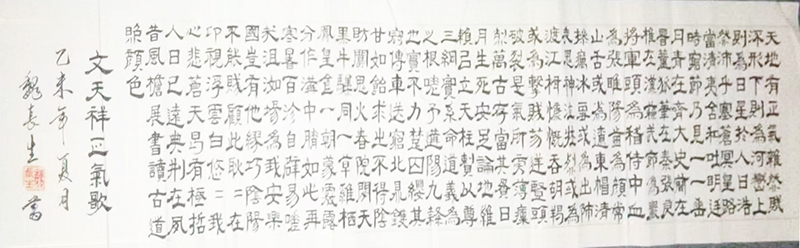 天地有正氣雜然賦
流形下則為河嶽上
則為日星於人曰浩
然沛乎塞蒼冥皇路
當清夷含和吐明廷
時窮節乃見一一垂
丹青在齊太史簡在
晉董狐筆在秦張良
椎在漢蘇武節為嚴
將軍頭為嵇侍中血
為張睢陽齒為顏常
山舌或為遼東帽清
操厲冰雪或為出師
表鬼神泣壯烈或為
渡江楫慷慨吞胡羯
或為擊賊笏逆豎頭
破裂是氣所旁薄凜
烈萬古存當其貫日
月生死安足論地維
賴以立天柱賴以尊
三綱實系命道義為
之根嗟予遘陽九隸
也實不力楚囚纓其
冠傳車送窮北鼎鑊
甘如飴求之不可得陰
房闃鬼火春院閟天
黑牛驥同一皂雞棲
鳳凰食一朝蒙霧露
分作溝中瘠如此再
寒暑百沴自辟易嗟
哉沮洳場為我安樂
國豈有他繆巧陰陽
不能賊顧此耿耿在
仰視浮雲白悠悠我
心悲蒼天曷有極哲
人日已遠典刑在夙
昔風檐展書讀古道
照顏色
文天祥正氣歌
乙未年夏月